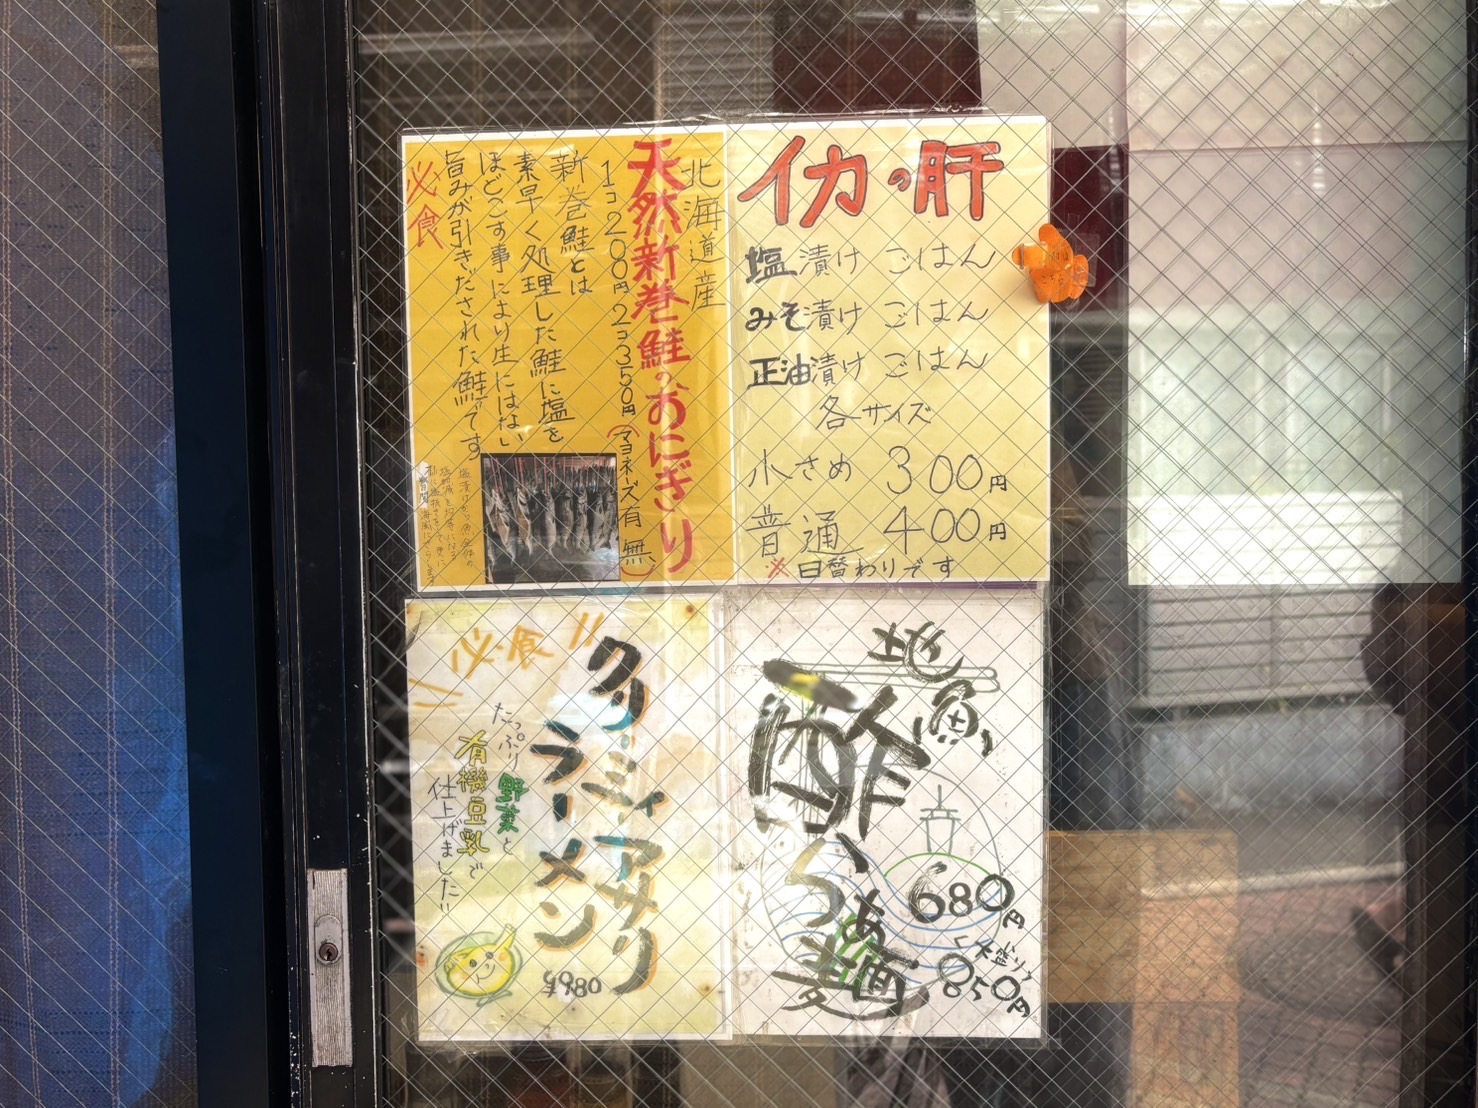 北海道産
天然新巻鮭のおにぎり
1コ200円 2コ350円(マヨネーズ有 無)
新巻鮭とは
素早く処理した鮭に塩を
ほどこす事により生にはない
旨みが引きだされた鮭です
必食
イカの肝
塩漬け ごはん
みそ漬け ごはん
正油漬け ごはん
各サイズ
小さめ 300円
普通 400円
※日替わりです
必食!!
クリーミィアサリ
ラーメン
たっぷり野菜と
有機豆乳で
仕上げました!!
¥980
地魚
酔らぁ麺
680円
(大盛り)
850円